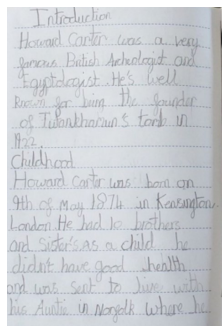 Introduction
Howard Carter was a very
famous British Archeologist and
Egyptologist. He's well
known for being the founder
of Tutankhamun's tomb in
1922.
Childhood
Howard Carter was born on
9th of May 1874 in Kensington
London. He had 10 brothers
and Sister's. As a child he
didn't have good health
and was sent to live with
his Auntie in Norfolk where he